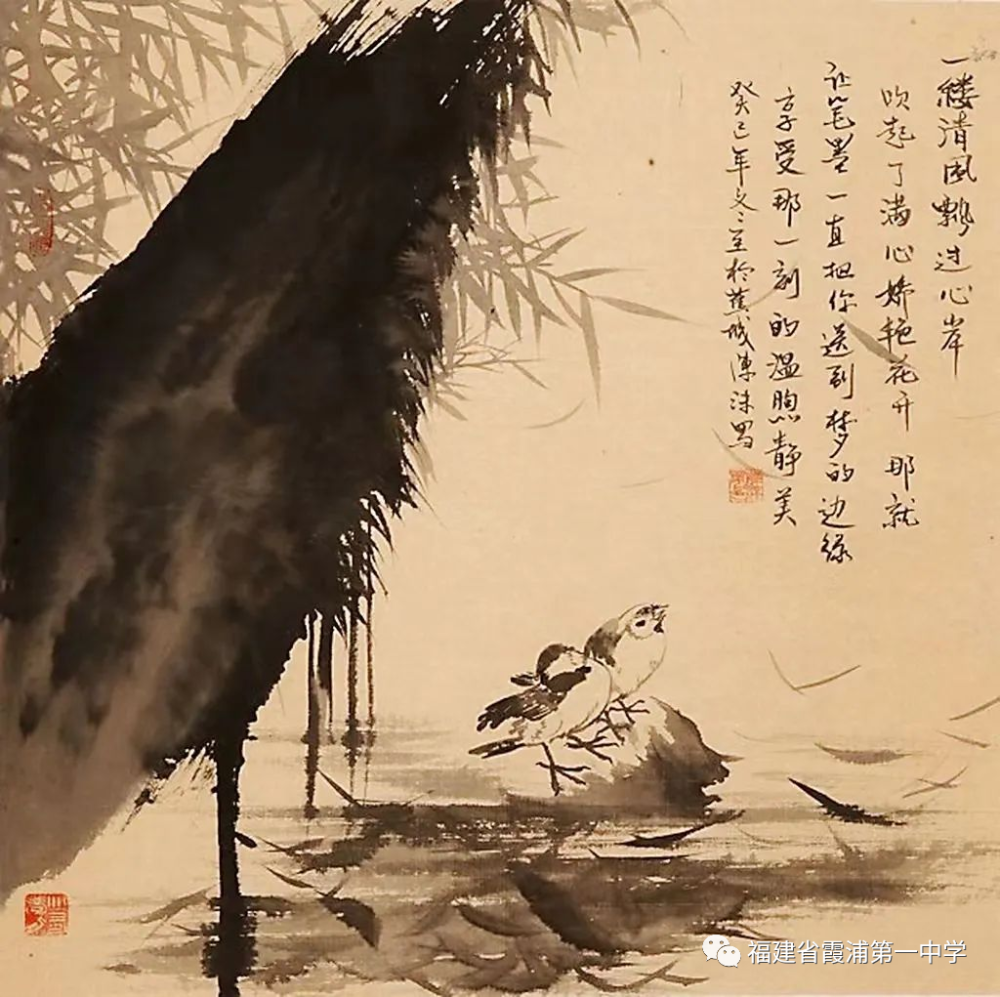 一缕清风飘过心岸
吹起了满心娇艳花开 那就
让笔墨一直把你送到梦的边缘
享受那一刻的温煦静美
癸巳年冬至於蕉城陈沫写
福建省霞浦第一中学